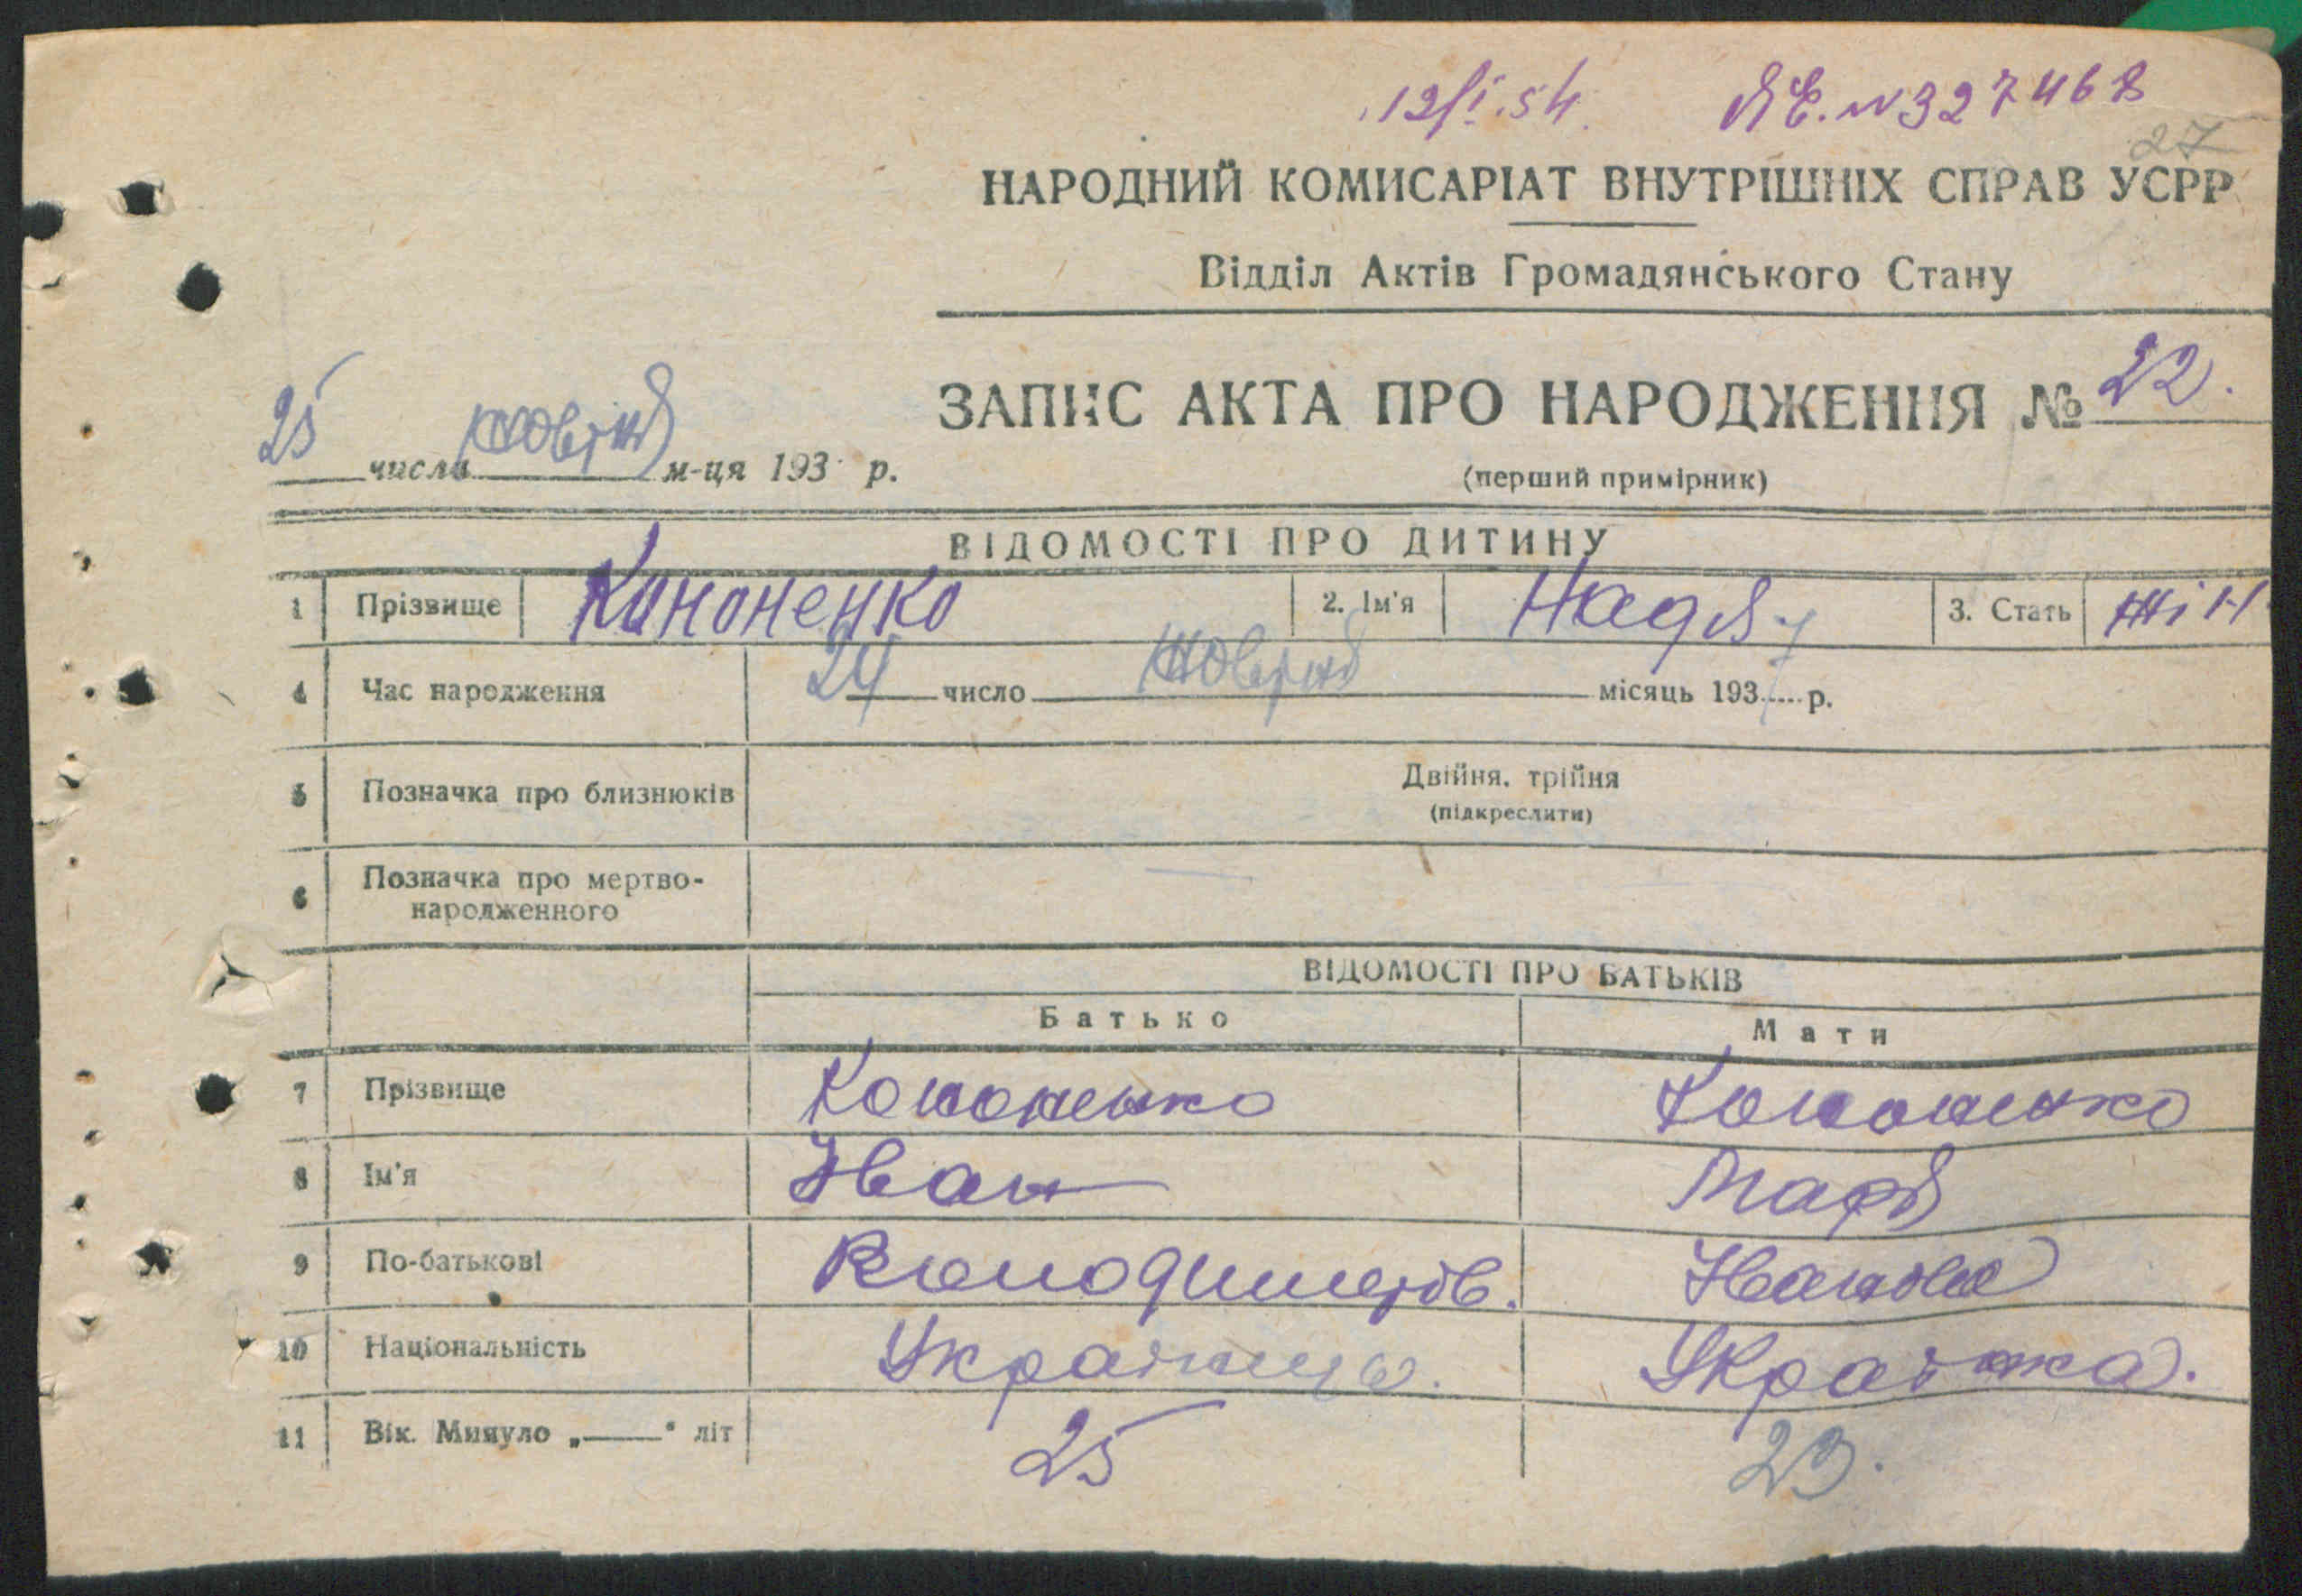 12/I.54. ЯЄ. N 327468
27
НАРОДНИЙ КОМИСАРІАТ ВНУТРІШНІХ СПРАВ УСРР
Відділ Актів Громадянського Стану
ЗАПИС АКТА ПРО НАРОДЖЕННЯ № 22.
25 числа жовтня м-ця 193 р.
(перший примірник)
ВІДОМОСТІ ПРО ДИТИНУ
1 Прізвище Кононенко 2. Ім'я Надя 3. Стать жін
4 Час народження 24 число жовтня місяць 1937 р.
5 Позначка про близнюків Двійня, трійня
(підкреслити)
6 Позначка про мертво-
народженного
ВІДОМОСТІ ПРО БАТЬКІВ
Батько Мати
7 Прізвище Кононенко Кононенко
8 Ім'я Іван Марія
9 По-батькові Володимиров. Іванівна
10 Національність Українець. Українка.
11 Вік. Минуло „ “ літ 25 23.